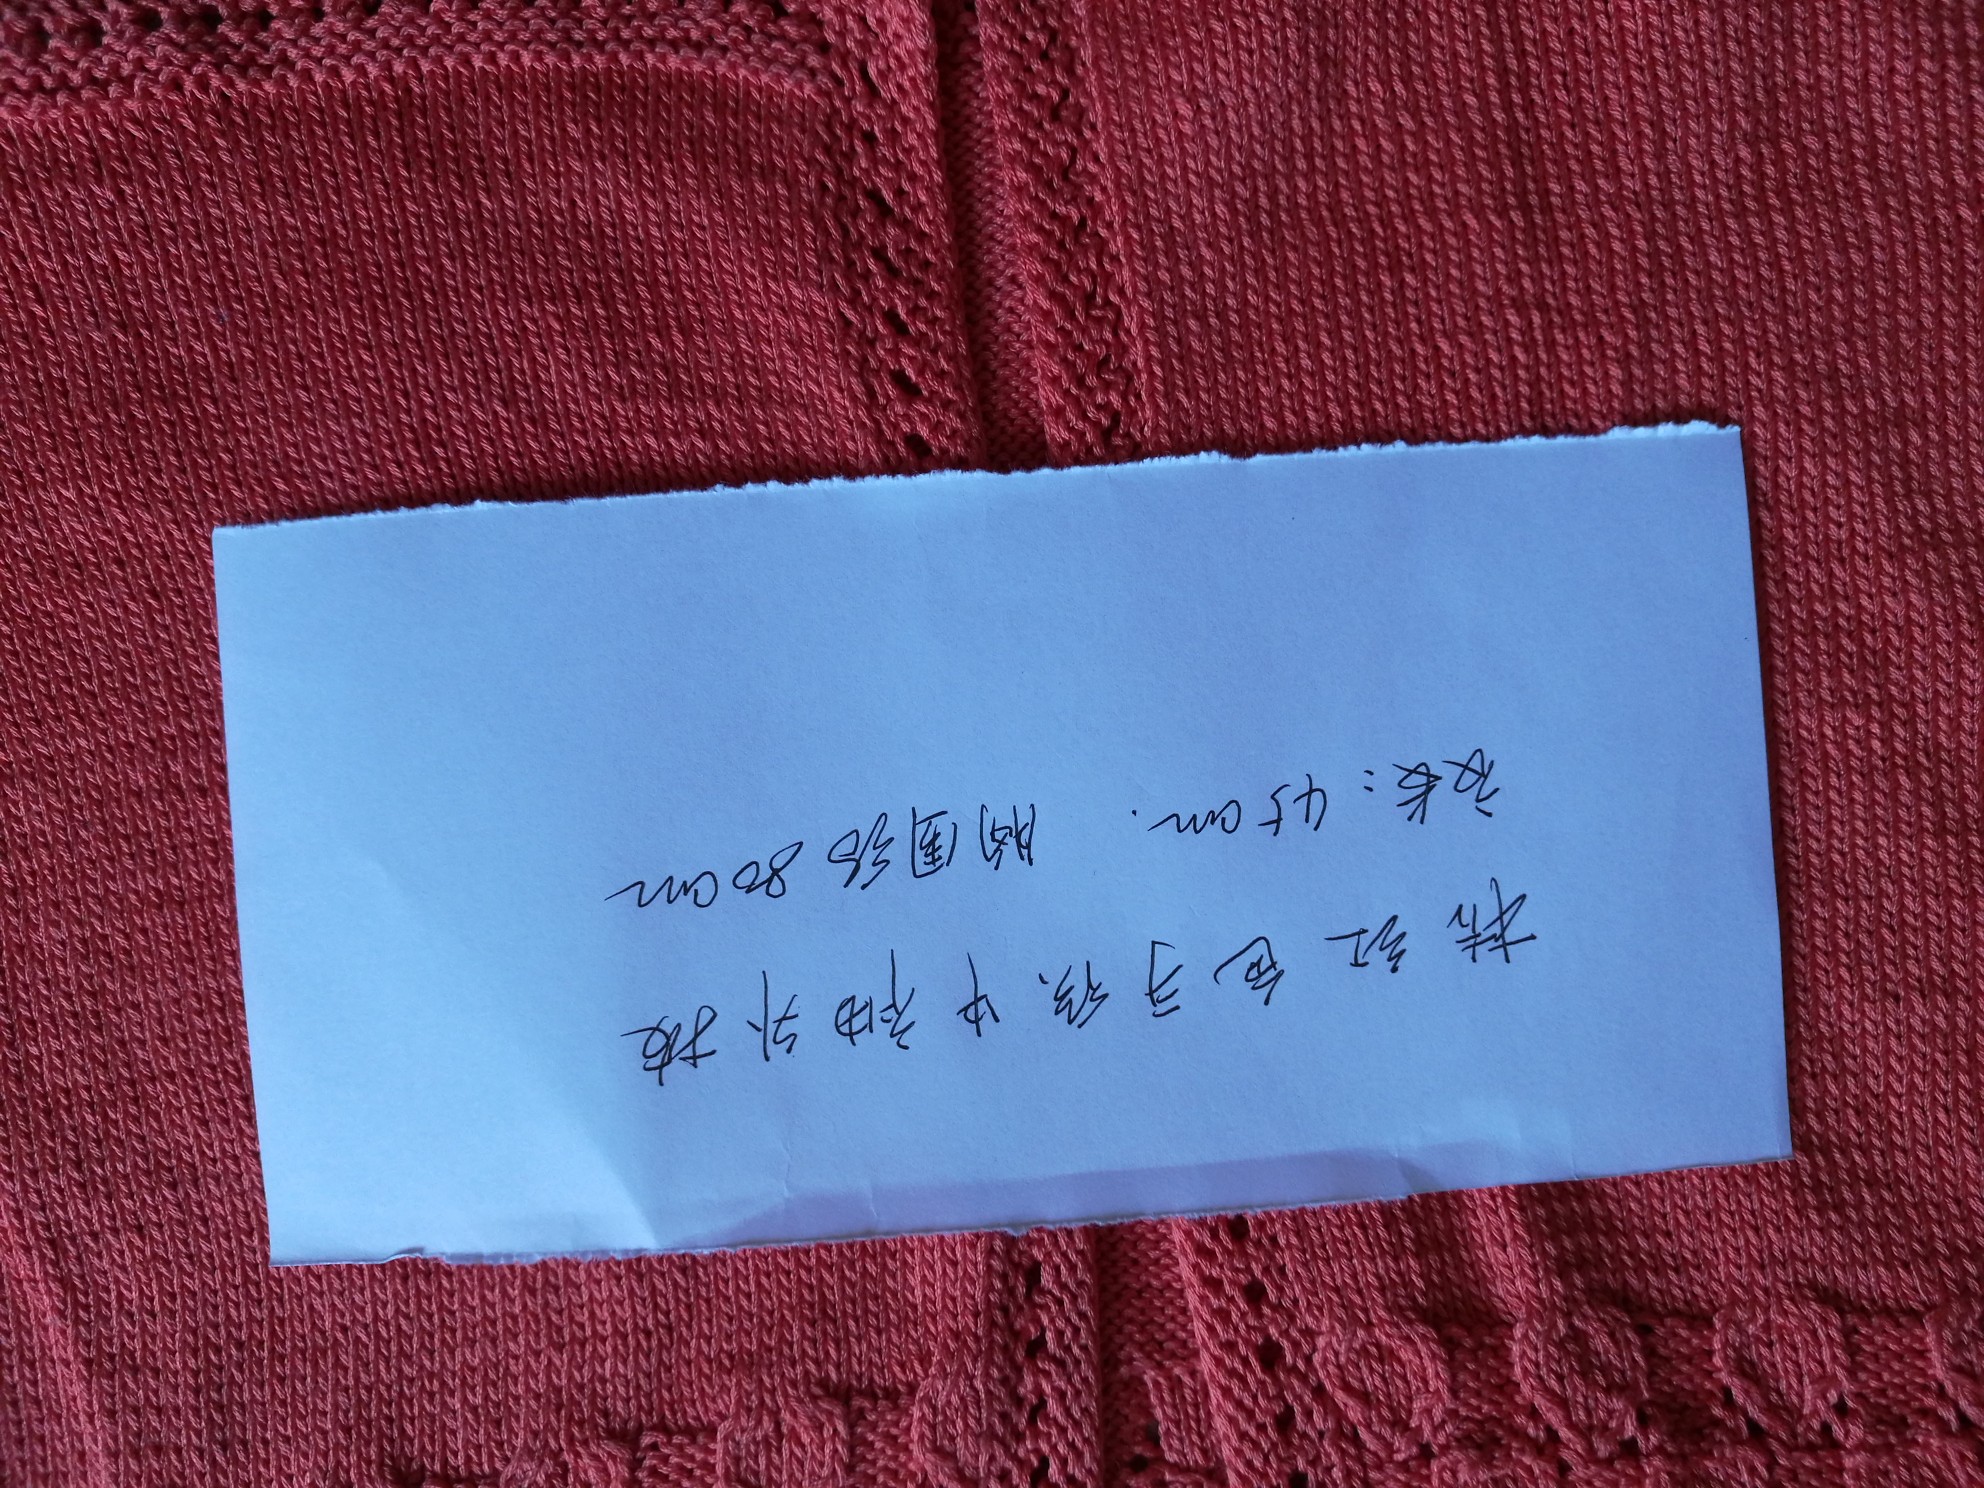 桃红色手编中袖外披
衣长:45cm. 胸围约80cm